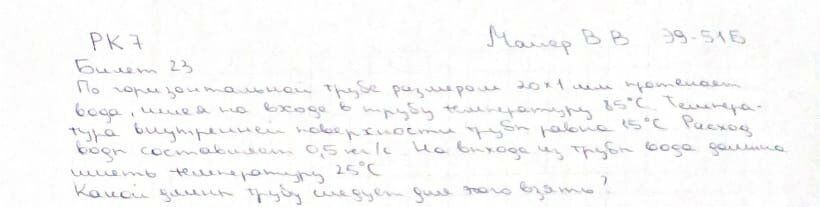 РК 7 Майер В В Э9-51Б
Билет 23
По горизонтальной трубе размером 20×1 мм протекает
вода, имея на входе в трубу температуру 85°С. Темпера-
тура внутренней поверхности трубы равна 15°С Расход
воды составляет 0,5 кг/с. На выходе из трубы вода должна
иметь температуру 25°С
Какой длины трубу следует для того взять?